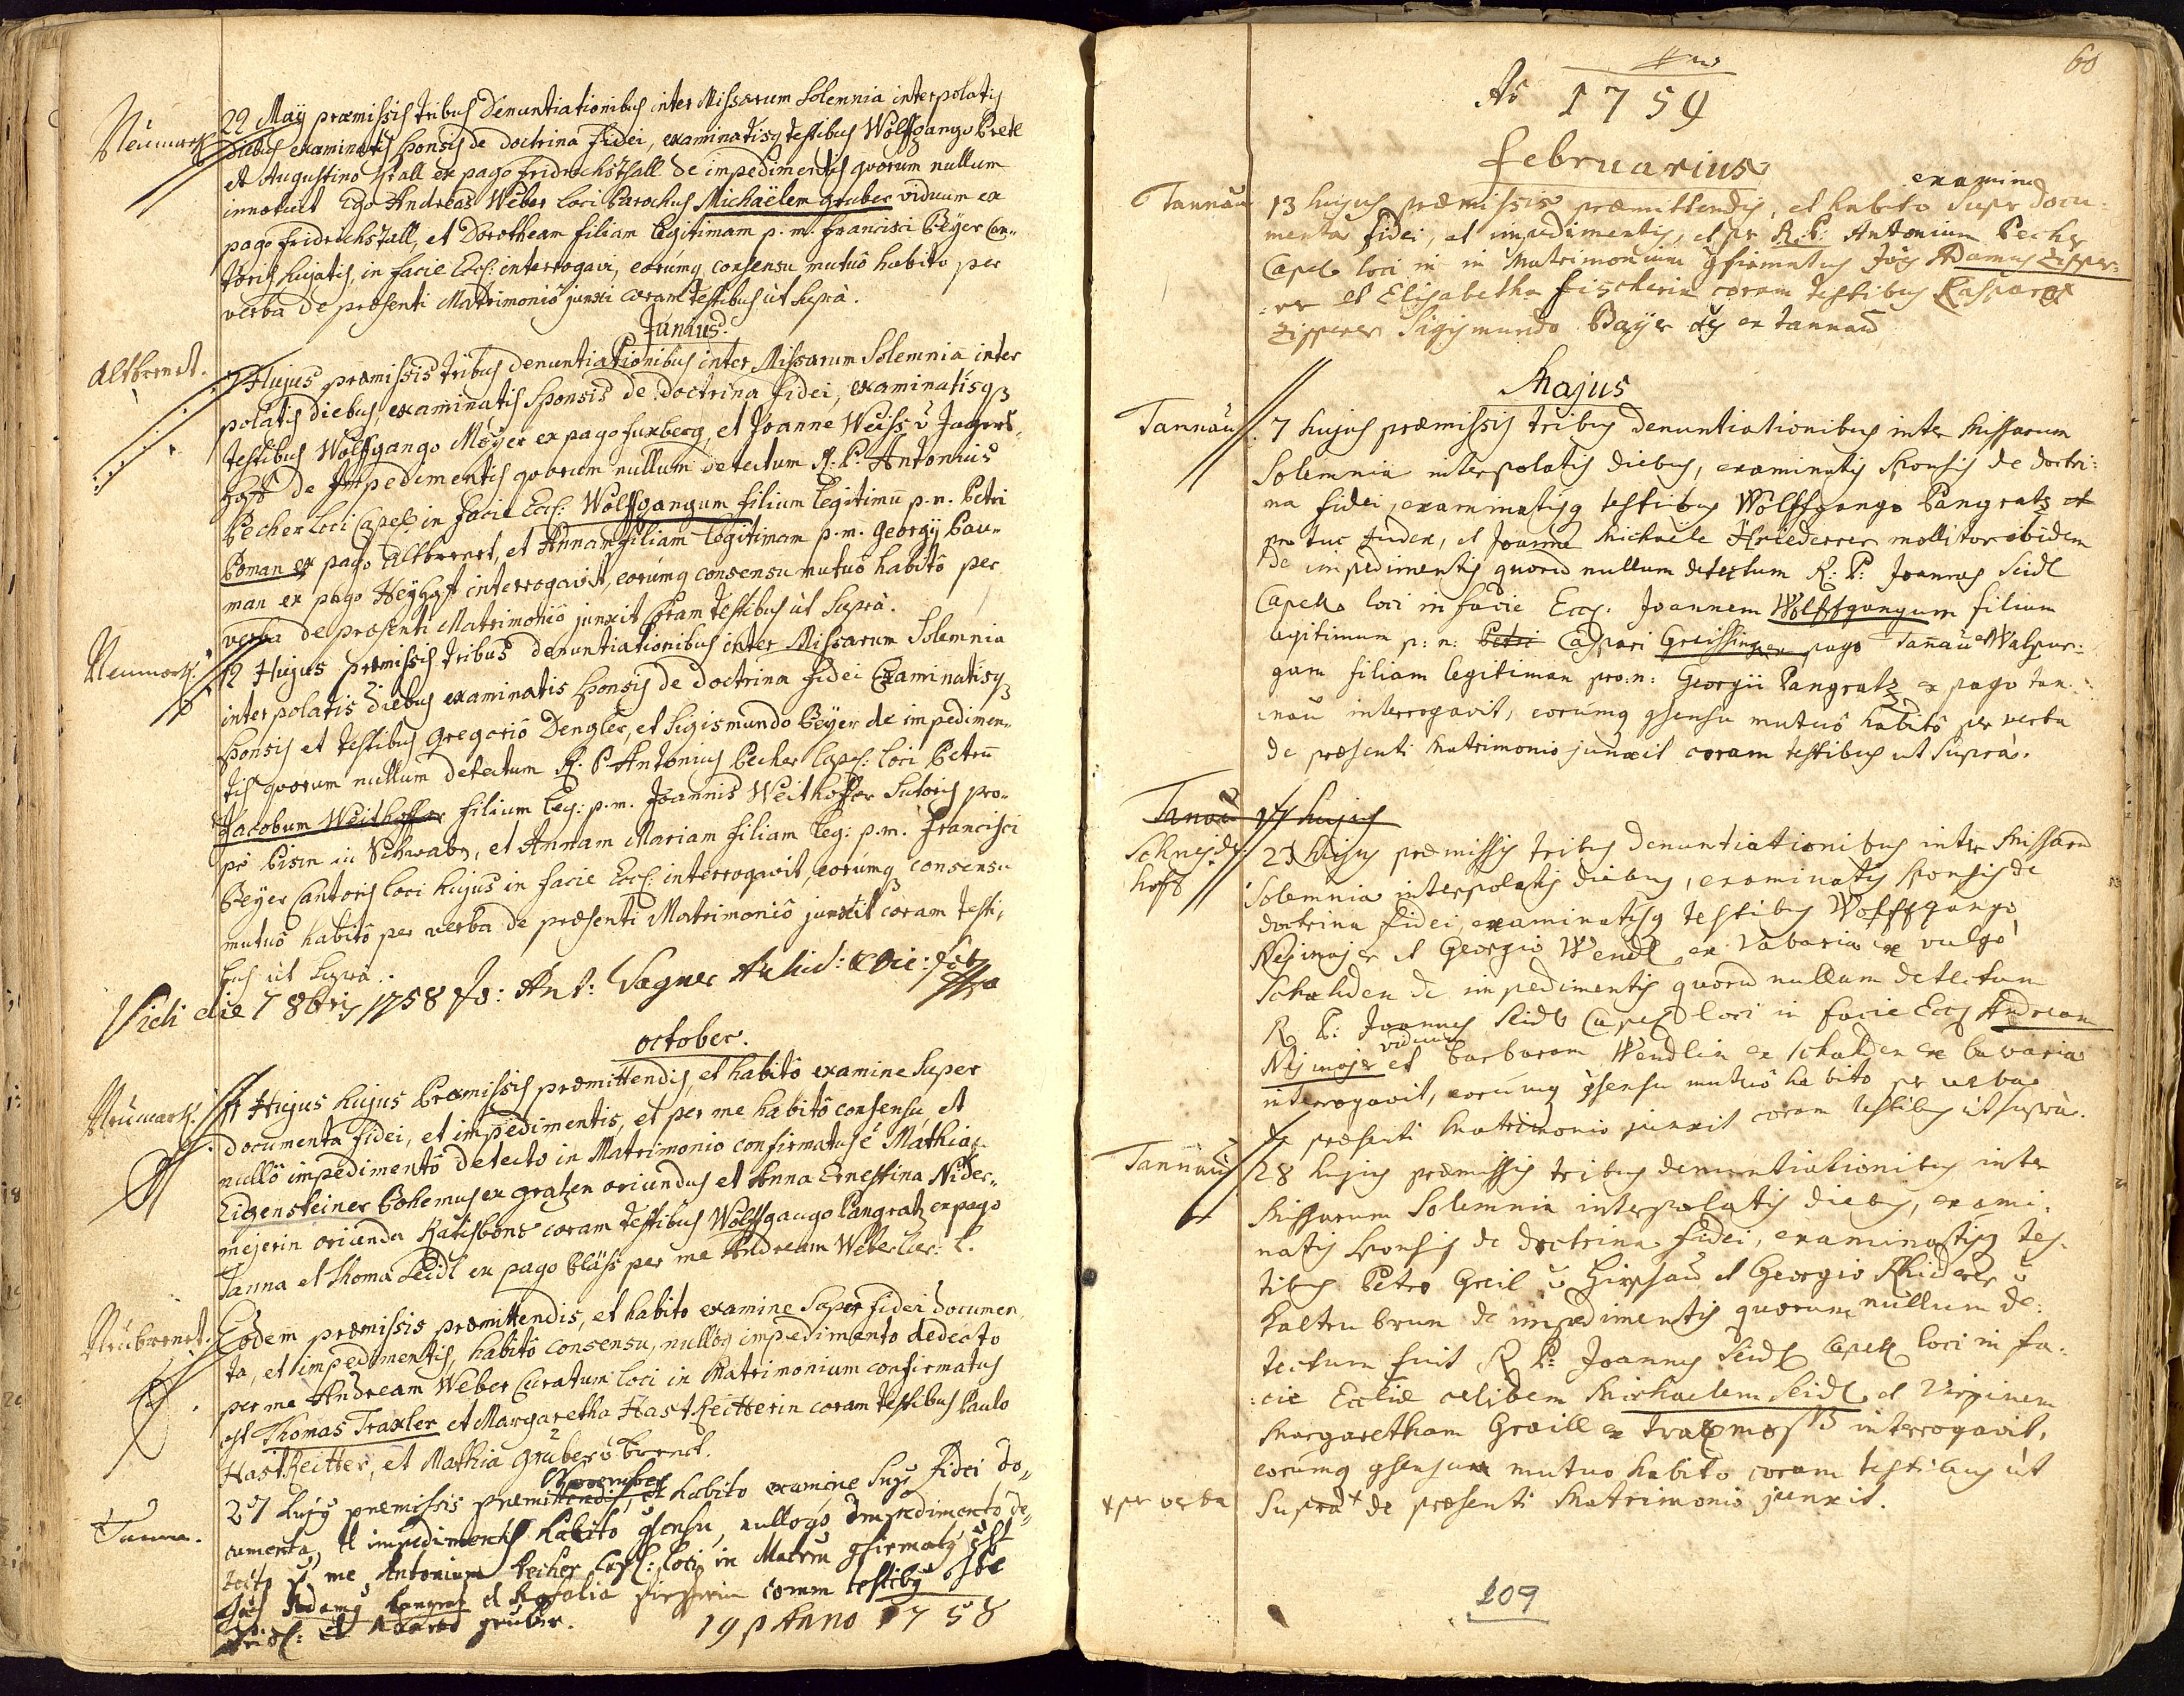 Neumark
29 Maÿ præmissis tribus Denuntiationibus inter Missarum Solemnia interpolatis
diebus examinatis sponsis de doctrina fidei, examinatisq testibus Wolffgango
et Augustino Stall ex pago fridrichsthall de impedimentis quorum nullum
innotuit Ego Andreas Weber loci Parochus Michaëlem Gruber viduum ex
pago fridrichstall, et Dorotheam filiam legitimam p. m. francisci Beÿer Can-
toris hujatis, in facie Eccl: interrogavi, eorumq consensu mutuô habito per
verba de præsenti Matrimoniô junxi coram testibus ùt suprà.
Junius.
Altbrenet.
7 Hujus præmissis tribus denuntiationibus inter Missarum Solemnia inter
polatis diebus, examinatis Sponsis de doctrina fidei, examinatisqz
testibus Wolffgango Moÿer ex pago fuxberg, et Joanne Weiss
de Impedimentis quorum nullum detectum R. P. Antonius
Pecher loci Capel: in facie Eccl: Wolffgangum filium legitimū p. n. Petri
Poman ex pago Altbrenet, et Annam filiam legitimam p. m. Georgÿ Bau-
man ex pago interrogavit, eorumq consensu mutuô habitô per
verba de præsenti Matrimoniô junxit coram testibus ùt suprà.
Neumark.
12 Hujus præmissis tribus denuntiationibus inter Missarum Solemnia
interpolatis diebus examinatis sponsis de doctrina fidei Examinatisqz
sponsis et testibus Gregoriô Dengler, et Sigismundo Beÿer de impedimen-
tis quorum nullum detectum R. P. Antonius Pecher Capel: loci Petrū
Jacobum Weithoffer filium leg: p. m. Joannis Weithoffer Sutoris pro-
pè in Schwabn, et Annam Mariam filiam leg: p.m. francisci
Beÿer Cantoris loci hujus in facie Eccl: interrogavit, eorumq consensu
mutuô habitô per verba de præsenti Matrimoniô junxit coram testi-
bus ùt suprà.
Vidi die 7 8bris 1758 Jo: Ant: Wagner
october.
Neumark.
Hujus hujus Præmissis præmittendis, et habitô examine super
documenta fidei, et impedimentis, et per me habitô consensu et
nullô impedimentô detecto in Matrimonio confirmatus è Mathias
Eigensteiner Bohemus ex gratzen oriundus et Anna Ernestina Nider-
mejerin oriunda Ratisbonæ coram testibus Wolffgango Pangratz ex pago
Tanna et Thoma Seidl ex pago Bläss per me Andream Weber
Neubrenet.
Eodem præmissis præmittendis, et habito examine super fidei documen
ta, et impedimentis, habitô consensu, nullôq impedimento dedecto
per me Andream Weber Curatum loci in Matrimonium confirmatus
est Thomas Traxler et Margaretha Hastreitterin coram testibus Paulo
Hastreitter, et Mathia Gruber ù Brenet.
November
Tanna.
27 hujÿ præmissis præmittendis, et habito examine supr fidei do-
cumenta, et impedimentis habito gsensu, nullogq Impedimento de-
tecto p me Antonium Pecher Capel: loci in Matrim gfirmatÿ est
Adamÿ Pangraz et Rosalia coram testibÿ
et Adamo gruber.
19 p Anno 1758
60
Aō 1759
februarius
Tannau
13 hujus præmissis præmittendis, et habito examine supr docu-
menta fidei, et impedimentis, et pr R: P: Antonium Pecher
Capel: loci in in Matrimonium gfirmatus Joes Adamus Zipper-
er et Elisabetha fischerin coram testibus Casparo
Zipperer Sigismundo Bayer ex tannau
Majus
Tannau
7 hujus præmissis tribus denuntiationibus inter Missarum
Solemnia interpolatis diebus, examinatis sponsis de doctri-
na fidei, examinatisq testibus Wolffgango Pangratz et
pro tunc Judex, et Joanne Michaele Hriederrer mollitor ibidem
de impedimentis quorū nullum detectum R: P: Joannes Seidl
Capell: loci in facie Eccl: Joannem Wolffgangum filium
legitimum p: n: Petri Caspari Greissinger pago Tanau et Walpur-
gam filiam legitimam pro: n: Georgii Pangratz ex pago tan-
nau interrogavit, eorumq gsensu mutuô habitô per verba
de præsenti Matrimonio junxit coram testibus ut suprà.
Tanau 17 hujus
Schneider
hoff
23 hujus præmissis tribus denuntiationibus inter Missarū
Solemnia interpolatis diebus, examinatis sponsis de
doctrina fidei, examinatisq testibus Wolffgango
Neÿmajer et Georgio Wendl ex Bavaria ex vulgò
Schahden de impedimentis quorū nullum detectum
R P: Joannes Seidl Capel: loci in facie Eccl: Andream
Neÿmajer viduum et Barbaram Wendlin ex schahden ex bavaria
interrogavit, eorumq gsensu mutuô habito pr verba
de præsenti Matrimonio junxit coram testibus ùt suprà.
Tannau
28 hujus præmissis tribus denuntiationibus inter
Missarum Solemnia interpolatis diebus, exami-
natis sponsis de doctrina fidei, examinatisq tes-
tibus Petro Greil ù Hirschau et Georgio Rhiderer ù
kaltenbrun de impedimentis quorum nullum de-
tectum fuit R P: Joannes Seidl Capell: loci in fa-
cie Eccliæ celibem Michaelem Seidl et Virginem
Margaretham Graill ex interrogavit,
eorumq gsensu mutuo habito coram testibus ùt
x per verba
supra x de præsenti Matrimonio junxit.
109